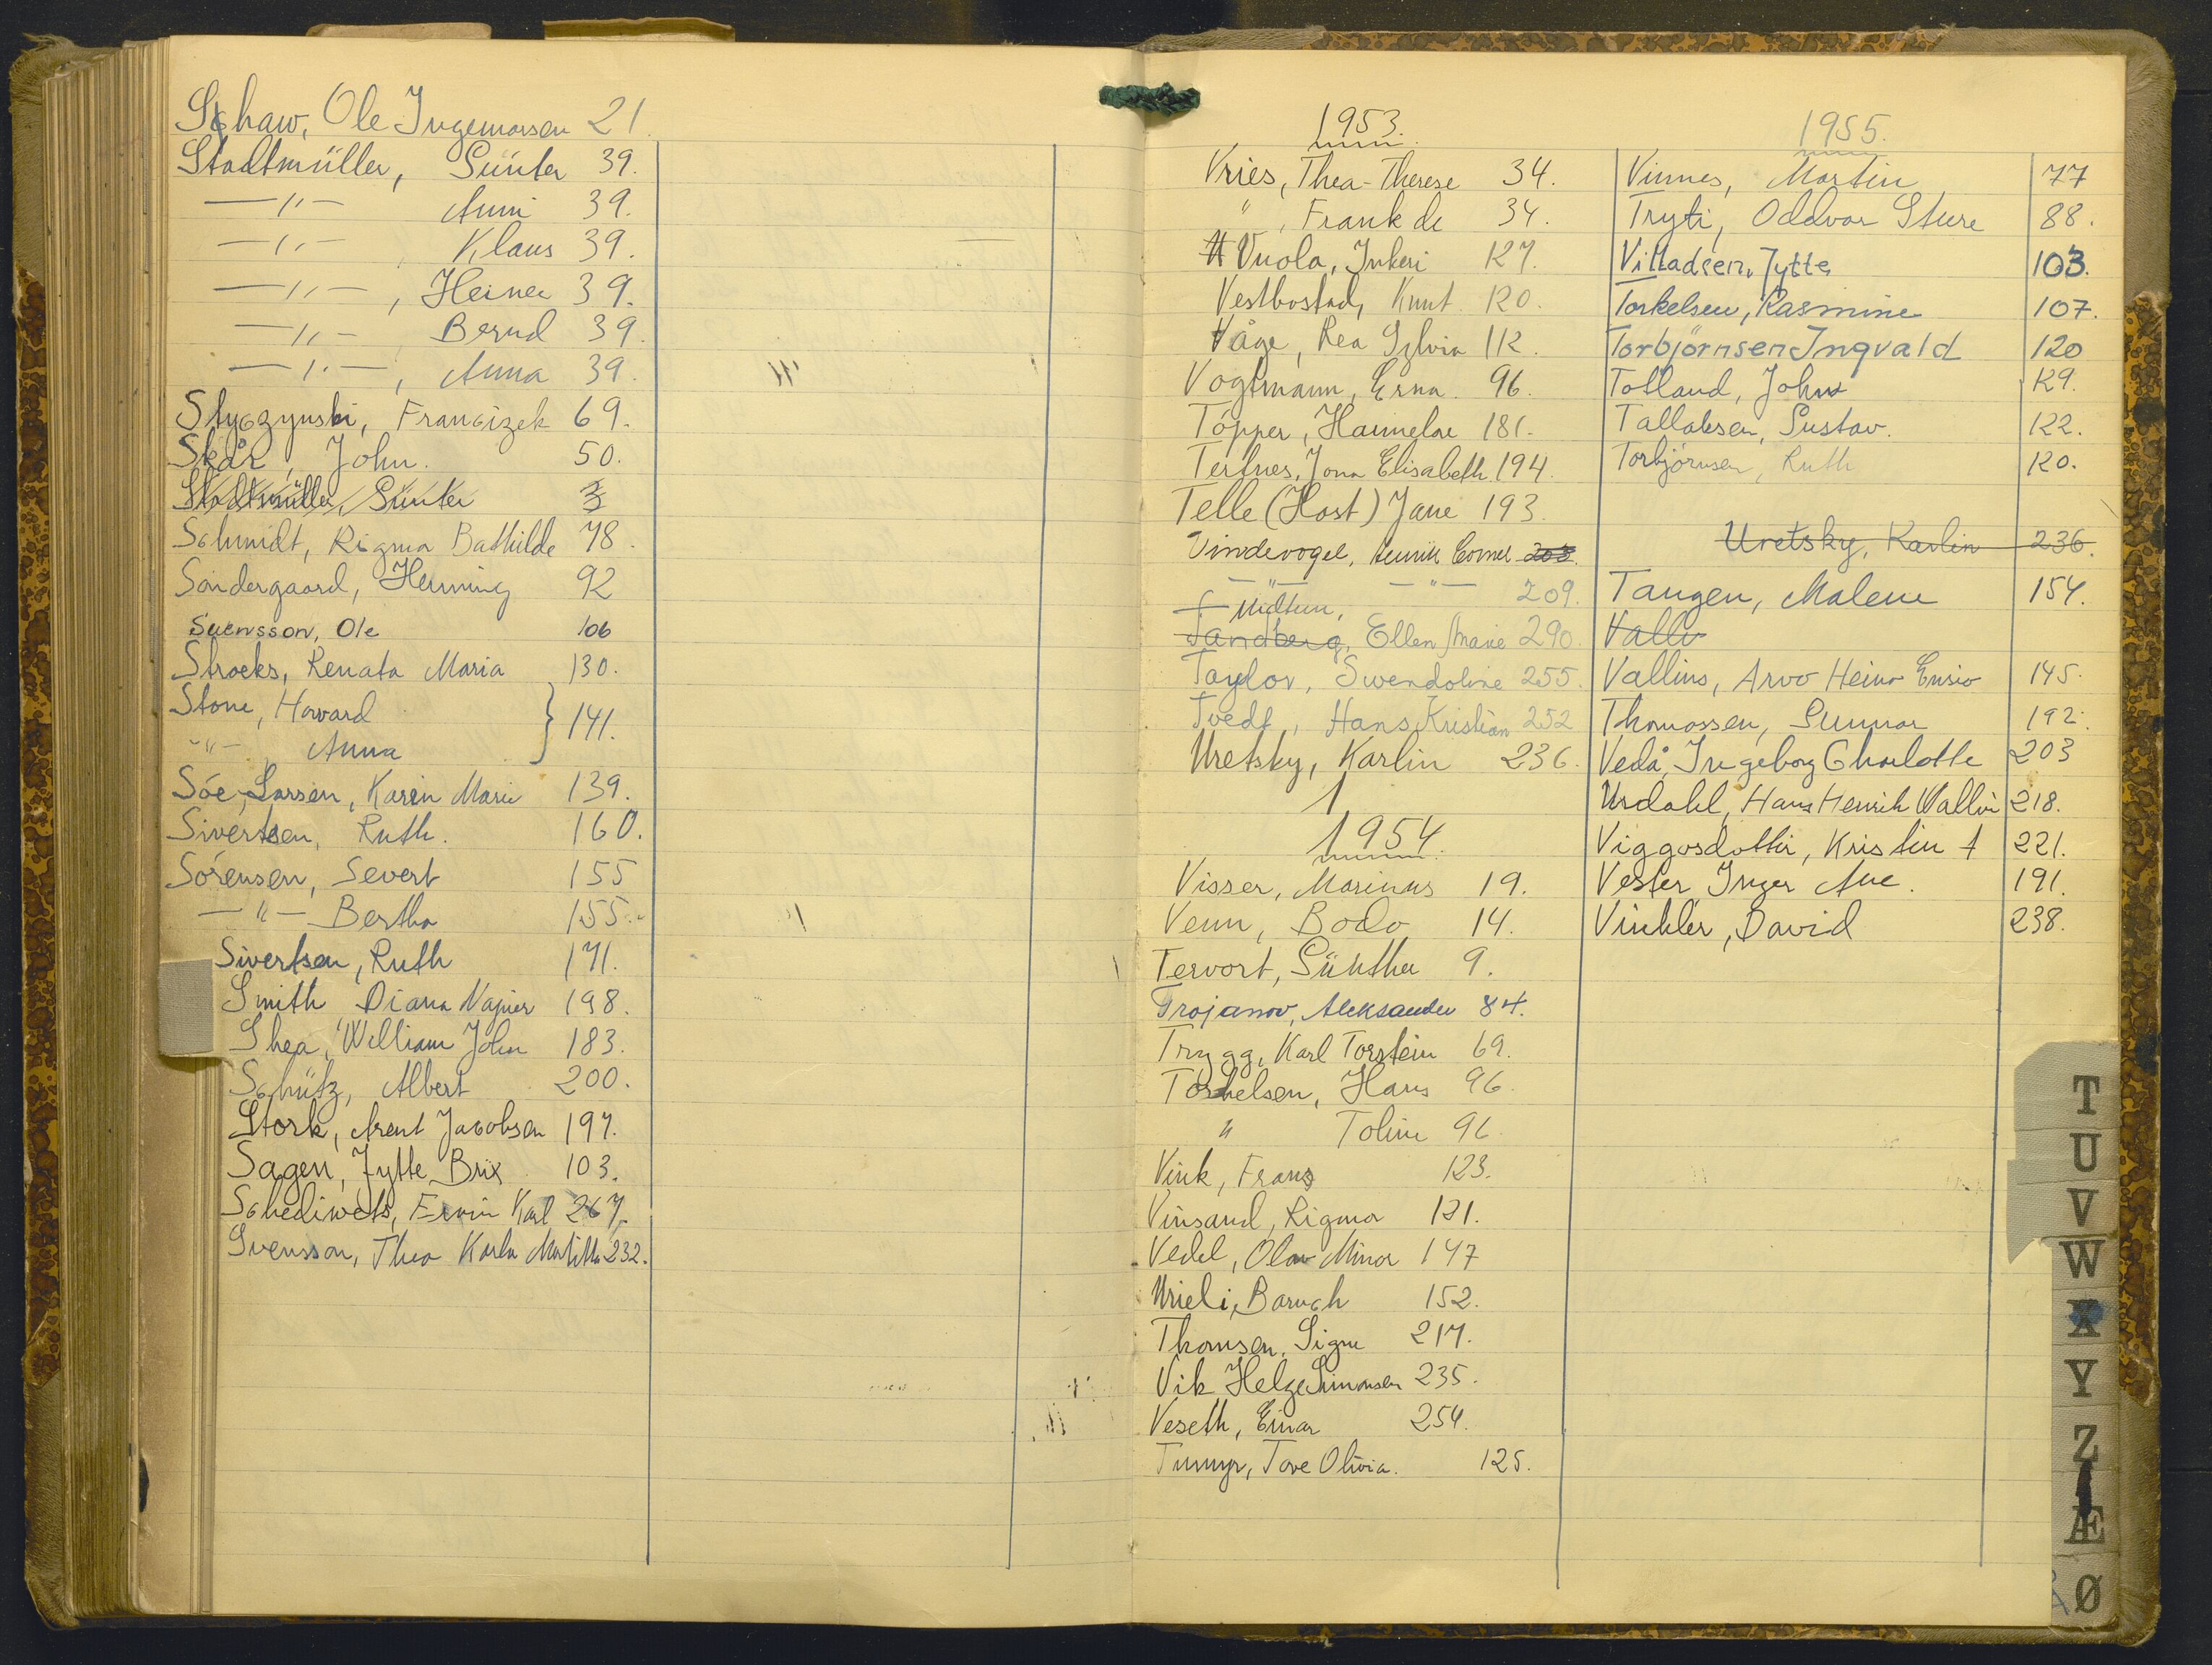 Schaw, Ole Ingemarsen 21.
Stadtmüller, Günter 39.
—"— Anni 39.
—"— , Klaus 39.
—"— , Heiner 39.
—"— , Bernd 39.
—"— , Anna 39.
Styczynski, Francizek 69.
Skår, John. 50.
Stadtmüller, Günter
Schmidt, Rigmor Bathilde 78.
Söndergaard, Henning 92
Svensson, Ole 106
Stroeks, Renata Maria 130.
Stone, Howard } 141.
-"- Anna
Sóe-Larsen, Karen Marie 139.
Sivertsen, Ruth. 160.
Sórensen, Severt 155
—"— Bertha 155.
Sivertsen, Ruth 171.
Smith Diana Napier 198.
Shea, William John 183.
Schütz, Albert 200.
Stork, Arent Jacobsen 197.
Sagen, Jytte Brix 103.
Schediwetz, Erwin Karl 267.
Svensson, Thea Karla Matilda 232.
1953.
Vries, Thea-Therese 34.
" , Frank de 34.
Vuola, Inkeri 127.
Vestbostad, Knut 120.
Våge, Rea Sylvia 112.
Vogtmann, Erna. 96.
Töpper, Hannelore 181.
Tertnes, Jona Elisabeth 194.
Telle (Host) Jane 193.
Vindevogel, Henrik Cornel 203.
—"— —"— 209.
Midtun,
Sandberg, Ellen Marie 290.
Taylor, Gwendoline 255.
Tvedt, Hans Kristian 252
Uretsky, Karlin 236.
1
1954.
Visser, Marinus 19.
Venn, Bodo 14.
Tervort, Günther 9.
Trojanov, Aleksander 84.
Trygg, Karl Torstein 69.
Torkelsen, Hans 96.
" Toline 96.
Vink, Frans 123.
Vinsand, Rigmor 121.
Vedel, Olav Minor 147
Urieli, Baruch 152.
Thomsen, Signe 217.
Vik Helge Simonsen 235.
Veseth, Einar 254.
Tove Olivia. 125.
1955.
Vinnes, Martin 77
Tryti, Oddvar Sture 88.
Villadsen, Jytte 103.
Torkelsen, Rasmine 107.
Torbjörnsen Ingvald 120
Tolland, John 129.
Tallaksen, Gustav. 122.
Torbjörnsen, Ruth 120.
Uretsky, Karlin 236.
Tangen, Malene 154.
Valli
Vallius, Arvo Heino Ensio 145.
Thomassen, Gunnar 192.
Vedå, Ingeborg Charlotte 203
Urdahl, Hans Henrik Wallin 218.
Viggosdottir, Kristin 221.
Vester Inger Ane. 191.
Vinkler, David 238.
T
U
V
W
X
Y
Z
Æ
Ø